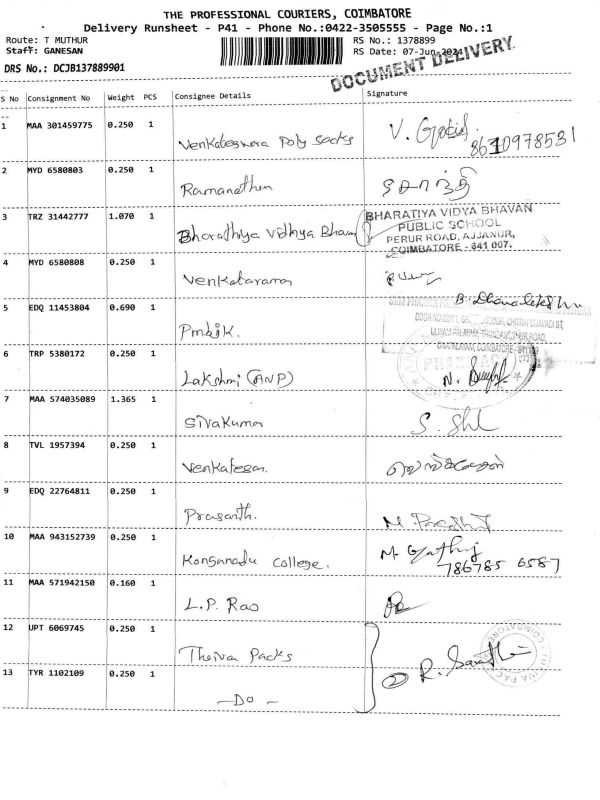 THE PROFESSIONAL COURIERS, COIMBATORE
Delivery Runsheet - P41 - Phone No.:0422-3505555 - Page No.:1
Route: T MUTHUR
RS No.: 1378899
Staff: GANESAN
RS Date: 07-Jun-2024
DRS No.: DCJB137889901
DOCUMENT DELIVERY
S No Consignment No Weight PCS Consignee Details Signature
1 MAA 301459775 0.250 1 Venkateswara Poly Sacks V.
8610978531
2 MYD 6580803 0.250 1 Ramanathan
3 TRZ 31442777 1.070 1 Bharathiya Vidhya Bhavan
BHARATIYA VIDYA BHAVAN
PUBLIC SCHOOL
PERUR ROAD, AJJANUR,
COIMBATORE - 641 007.
4 MYD 6580808 0.250 1 Venkataraman
5 EDQ 11453804 0.690 1 Pmbjk. B. Dhanalakshmi
6 TRP 5380172 0.250 1 Lakshmi (ANP) N.
7 MAA 574035089 1.365 1 Sivakumar S.
8 TVL 1957394 0.250 1 Venkatesan.
9 EDQ 22764811 0.250 1 Prasanth.
10 MAA 943152739 0.250 1 Kongunadu College. M.
786785 6587
11 MAA 571942150 0.160 1 L.P. Rao
12 UPT 6069745 0.250 1 Theiva Packs
13 TYR 1102109 0.250 1 -DO- ② R.